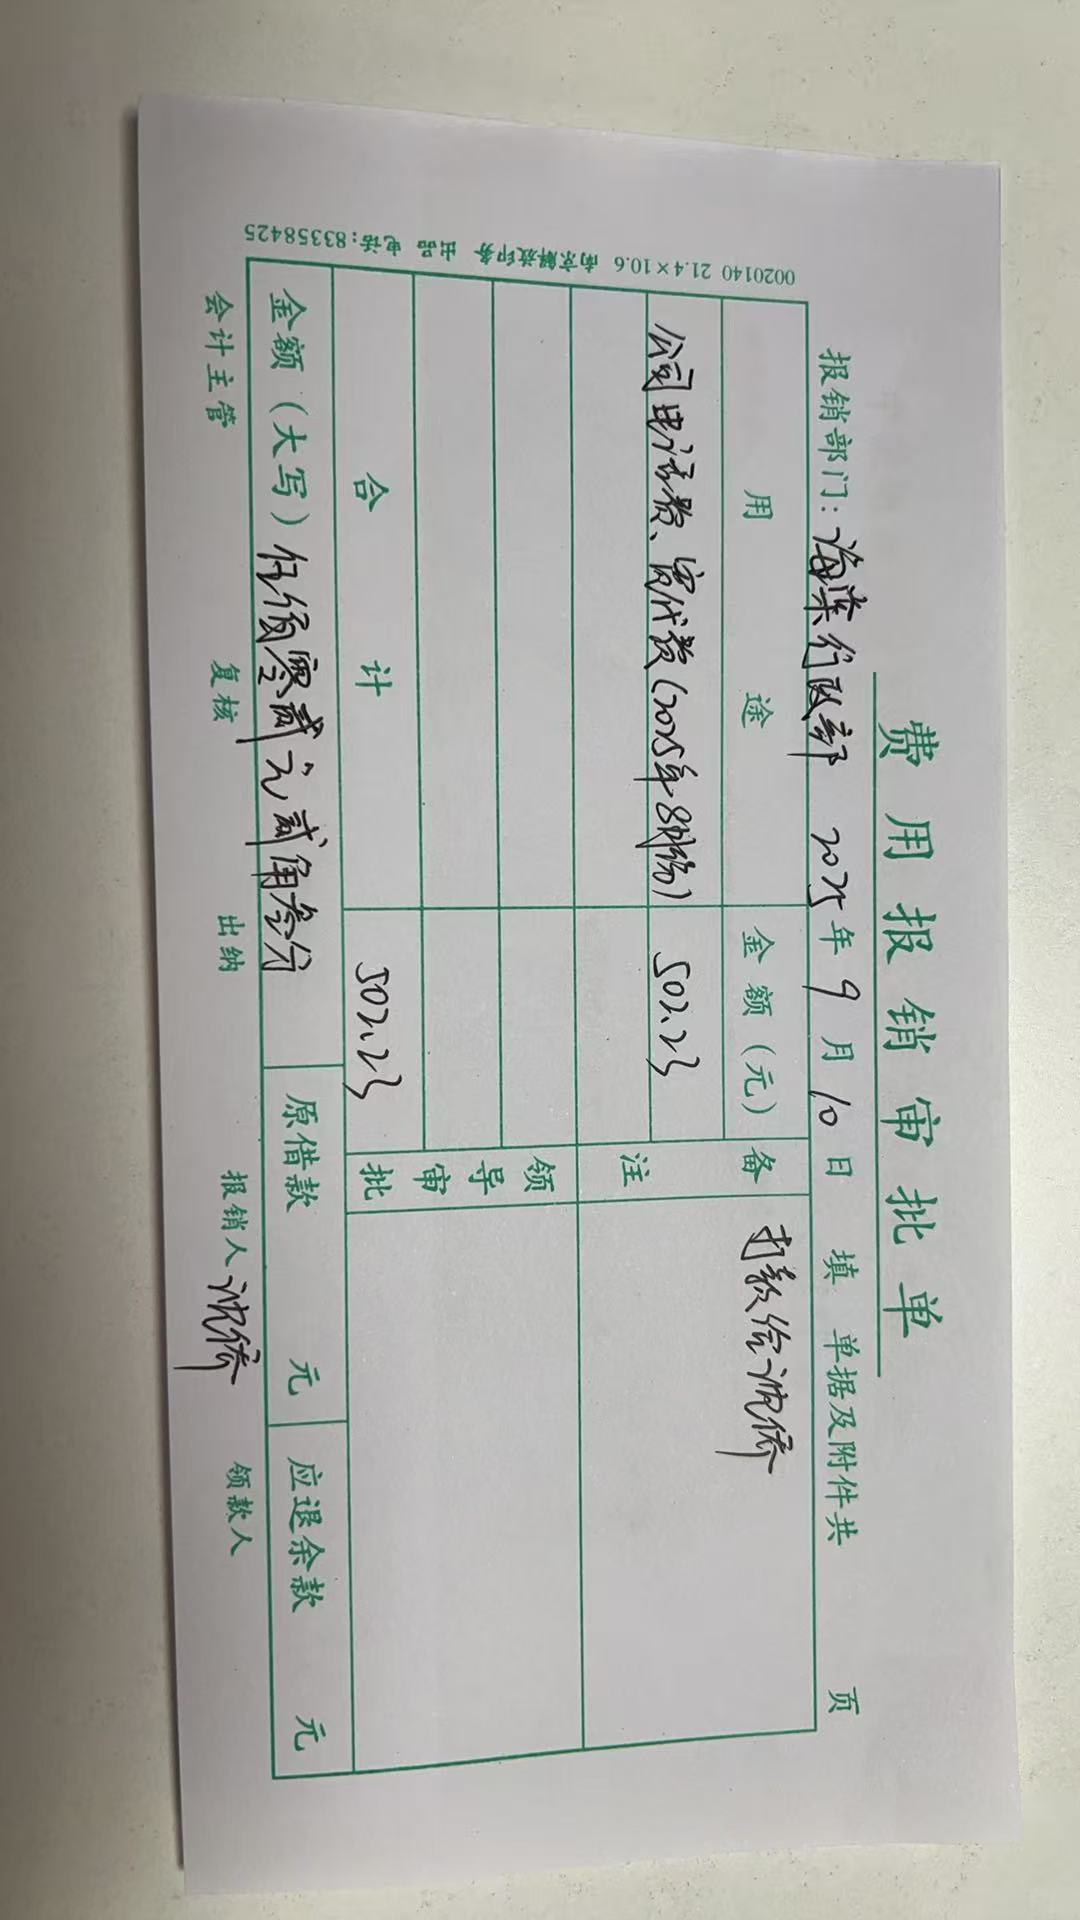 费用报销审批单
报销部门：海棠行政部 2025年9月10日 填 单据及附件共 页
用途 金额（元） 备注 打款给沈侨
公司电话费、宽带费（2025年8月份） 502.23
领导审批
合计 502.23
金额（大写）伍佰零贰元贰角叁分 原借款 元 应退余款 元
会计主管 复核 出纳 报销人 沈侨 领款人
0020140 21.4×10.6 南京解放印务 出品 电话：83358425